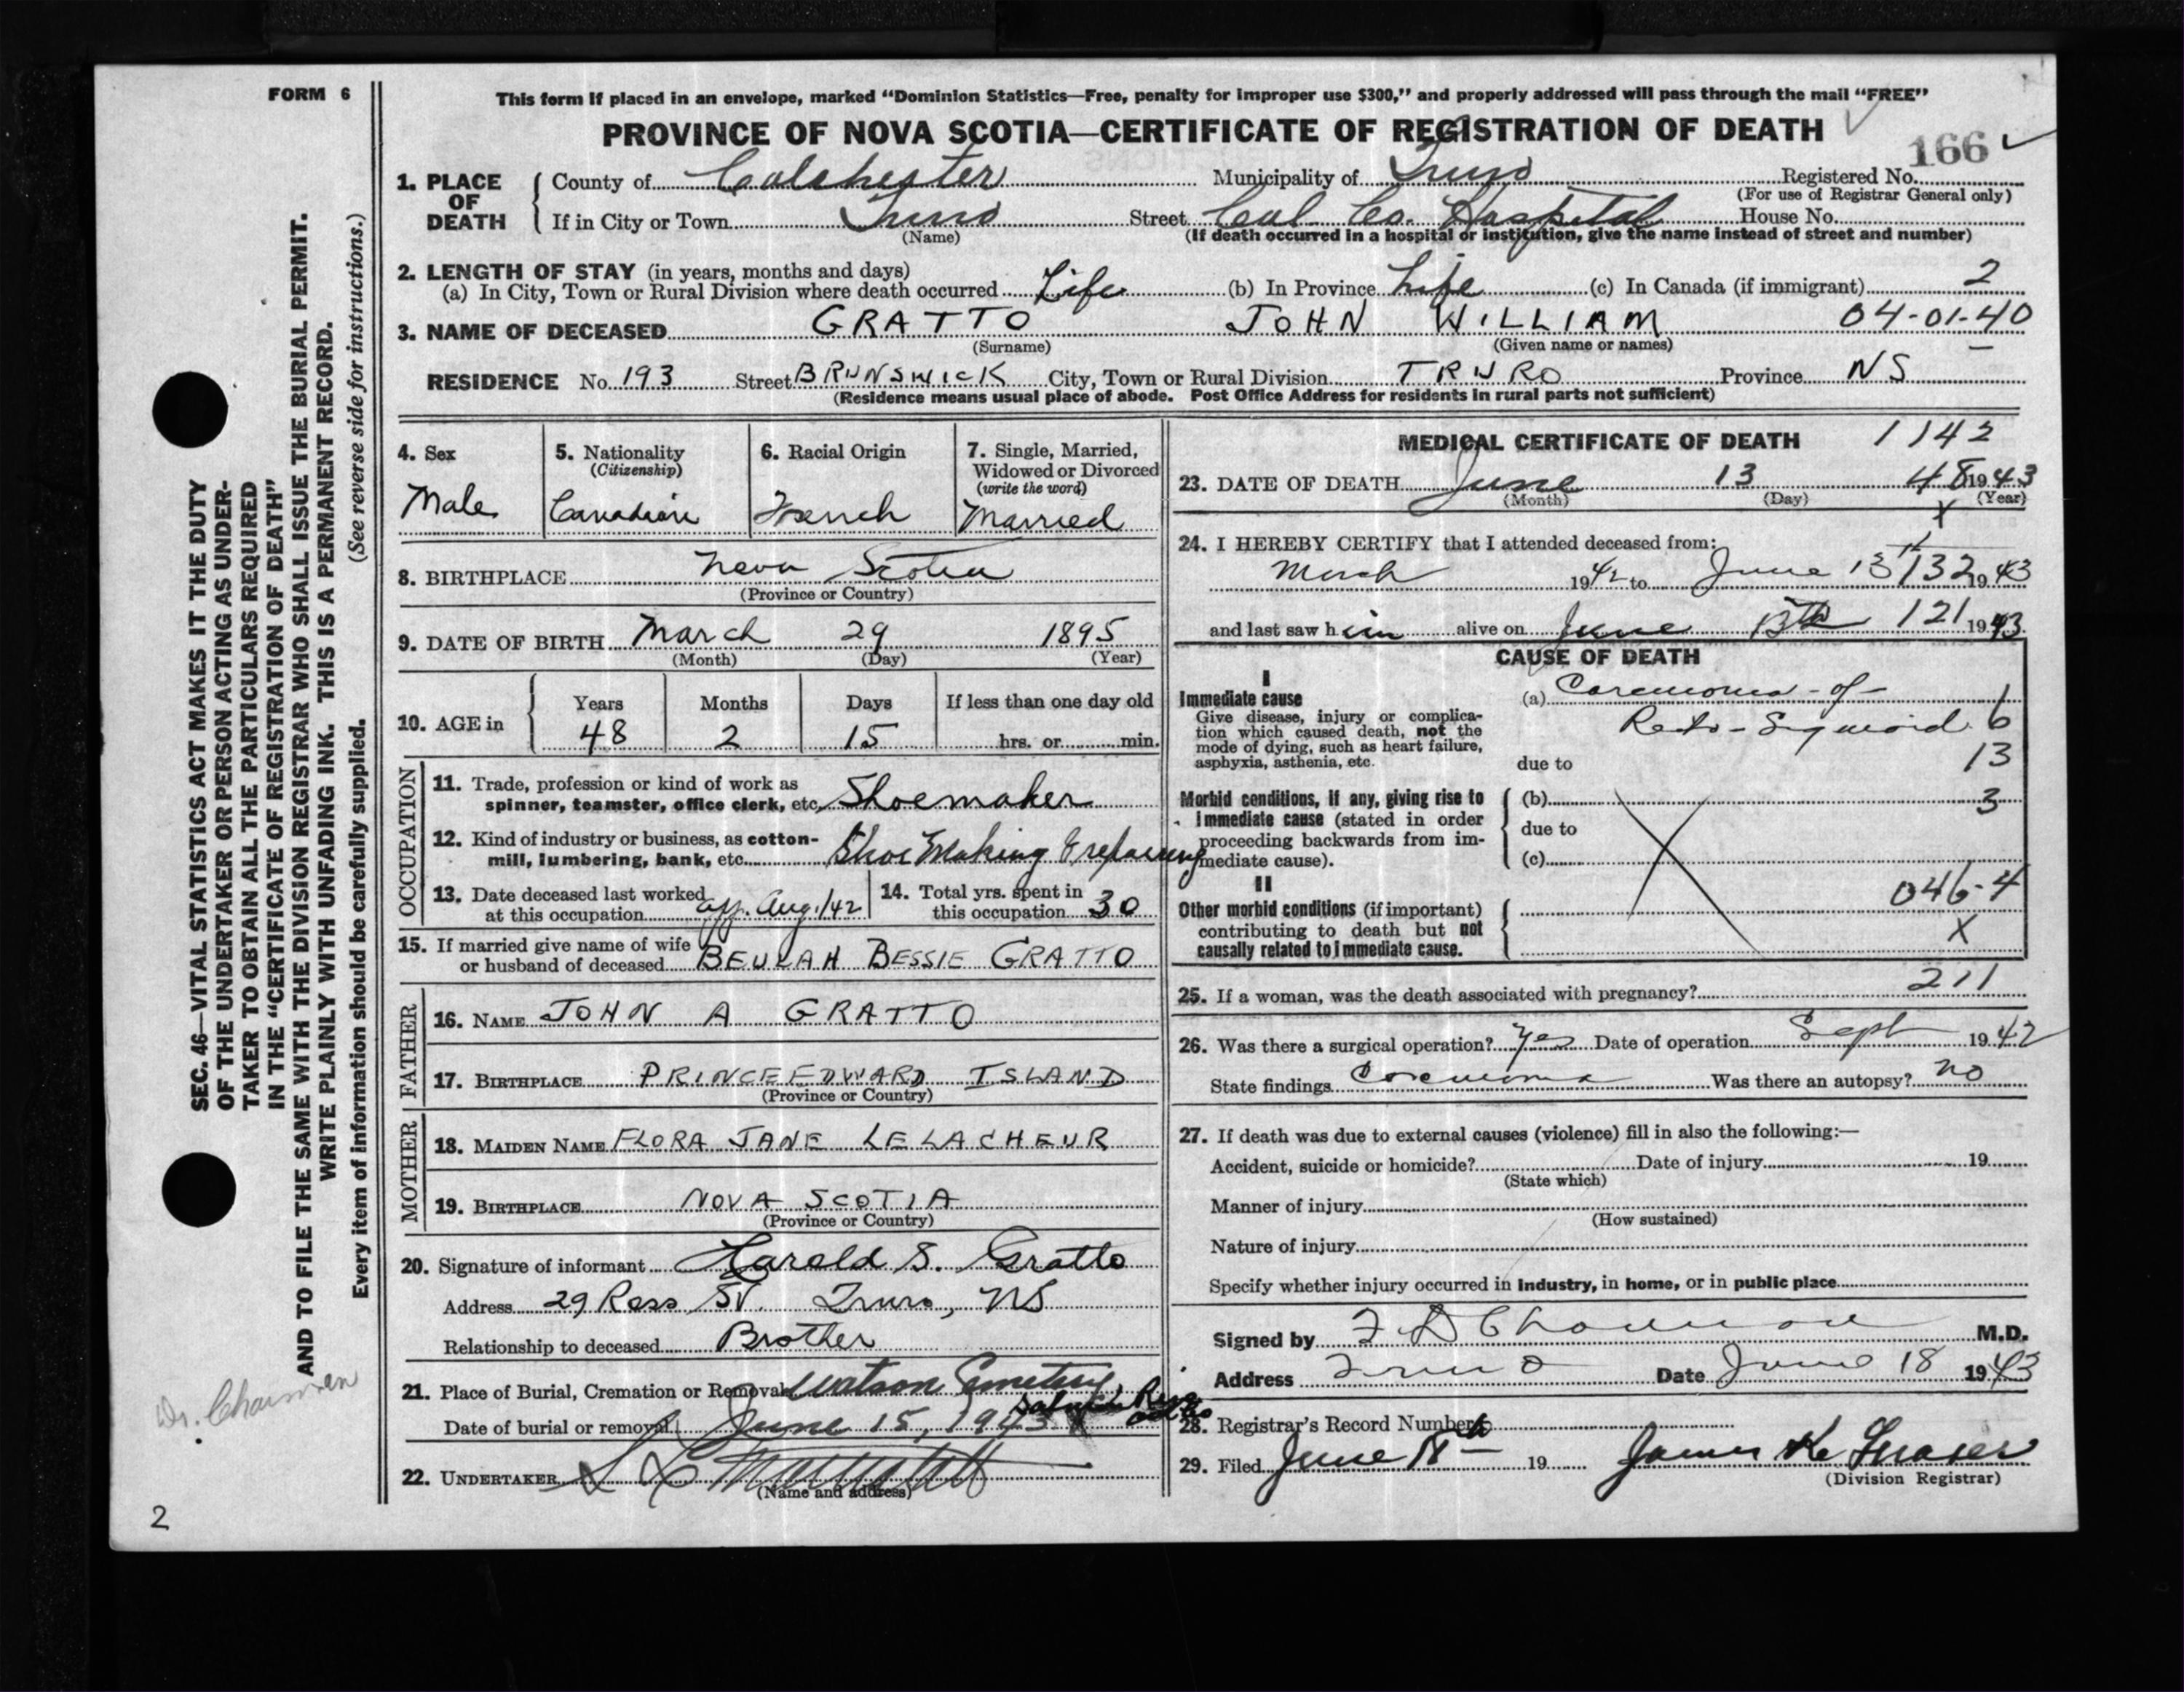 FORM 6
This form if placed in an envelope, marked "Dominion Statistics—Free, penalty for improper use $300," and properly addressed will pass through the mail "FREE"
PROVINCE OF NOVA SCOTIA—CERTIFICATE OF REGISTRATION OF DEATH
166
1. PLACE OF DEATH
County of Colchester Municipality of Truro Registered No.
(For use of Registrar General only)
If in City or Town Truro Street Col. Co. Hospital House No.
(Name) (If death occurred in a hospital or institution, give the name instead of street and number)
2. LENGTH OF STAY (in years, months and days)
(a) In City, Town or Rural Division where death occurred Life (b) In Province Life (c) In Canada (if immigrant) 2
3. NAME OF DECEASED GRATTO JOHN WILLIAM 04-01-40
(Surname) (Given name or names)
RESIDENCE No. 193 Street BRUNSWICK City, Town or Rural Division TRURO Province NS
(Residence means usual place of abode. Post Office Address for residents in rural parts not sufficient)
4. Sex
Male
5. Nationality
(Citizenship)
Canadian
6. Racial Origin
French
7. Single, Married,
Widowed or Divorced
(write the word)
Married
8. BIRTHPLACE Nova Scotia
(Province or Country)
9. DATE OF BIRTH March 29 1895
(Month) (Day) (Year)
10. AGE in
Years Months Days If less than one day old
48 2 15 hrs. or min.
OCCUPATION
11. Trade, profession or kind of work as
spinner, teamster, office clerk, etc. Shoemaker
12. Kind of industry or business, as cotton-
mill, lumbering, bank, etc. Shoe Making & repairing
13. Date deceased last worked
at this occupation Aug./42
14. Total yrs. spent in
this occupation 30
15. If married give name of wife
or husband of deceased BEULAH BESSIE GRATTO
FATHER
16. NAME JOHN A GRATTO
17. BIRTHPLACE PRINCE EDWARD ISLAND
(Province or Country)
MOTHER
18. MAIDEN NAME FLORA JANE LELACHEUR
19. BIRTHPLACE NOVA SCOTIA
(Province or Country)
20. Signature of informant Harold S. Gratto
Address 29 Ross St. Truro, NS
Relationship to deceased Brother
21. Place of Burial, Cremation or Removal Watson Cemetery,
Date of burial or removal June 15, 1943
22. UNDERTAKER
(Name and address)
MEDICAL CERTIFICATE OF DEATH 1142
23. DATE OF DEATH June 13 48 1943
(Month) (Day) (Year)
X
24. I HEREBY CERTIFY that I attended deceased from:
March 1942 to June 13 132 1943
and last saw him alive on June 13th 121 1943
CAUSE OF DEATH
I
Immediate cause
Give disease, injury or complica-
tion which caused death, not the
mode of dying, such as heart failure,
asphyxia, asthenia, etc.
(a) Carcinoma - of - 1
Recto-Sigmoid 6
due to 13
Morbid conditions, if any, giving rise to
immediate cause (stated in order
proceeding backwards from im-
mediate cause).
(b) 3
due to
(c)
II
046-4
Other morbid conditions (if important)
contributing to death but not
causally related to immediate cause.
X
25. If a woman, was the death associated with pregnancy? 211
26. Was there a surgical operation? Yes Date of operation Sept 1942
State findings Carcinoma Was there an autopsy? no
27. If death was due to external causes (violence) fill in also the following:—
Accident, suicide or homicide? Date of injury 19
(State which)
Manner of injury
(How sustained)
Nature of injury
Specify whether injury occurred in industry, in home, or in public place
Signed by M.D.
Address Truro Date June 18 1943
28. Registrar's Record Number
29. Filed June 19 James K Fraser
(Division Registrar)
SEC. 46—VITAL STATISTICS ACT MAKES IT THE DUTY
OF THE UNDERTAKER OR PERSON ACTING AS UNDER-
TAKER TO OBTAIN ALL THE PARTICULARS REQUIRED
IN THE "CERTIFICATE OF REGISTRATION OF DEATH"
AND TO FILE THE SAME WITH THE DIVISION REGISTRAR WHO SHALL ISSUE THE BURIAL PERMIT.
WRITE PLAINLY WITH UNFADING INK. THIS IS A PERMANENT RECORD.
Every item of information should be carefully supplied. (See reverse side for instructions.)
Dr.
2